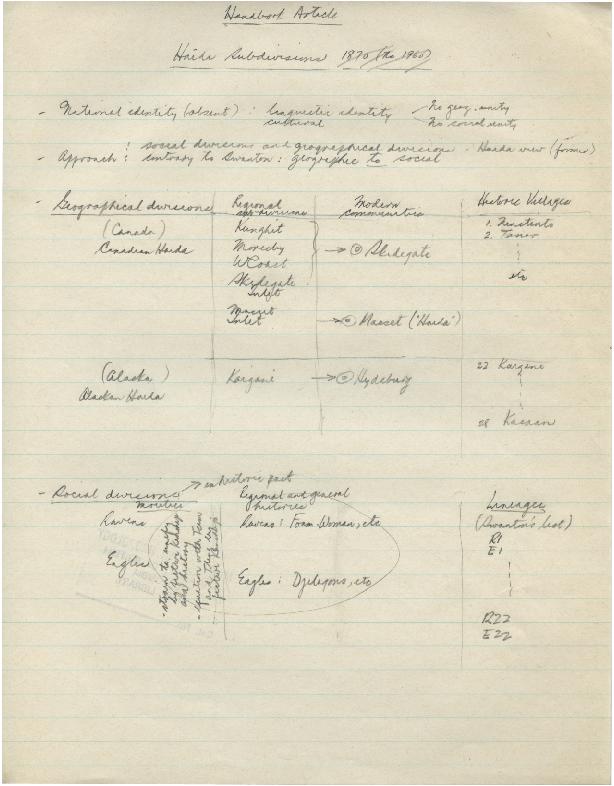 Handbook Article
Haida Subdivisions 1870 (to 1960)
- National identity (absent) : linguistic identity
cultural
No geog. unity
No social unity
: social divisions and geographical divisions - Haida view (former)
- Approach : contrary to Swanton : geographic to social
- Geographical divisions
Regional sub-divisions
Modern communities
Historic Villages
(Canada)
Canadian Haida
Kunghit
Moresby
W Coast
Skidegate Inlet
Masset Inlet
→ Skidegate
→ Masset ("Haida")
1.
2.
etc
(Alaska)
Alaskan Haida
Kaigani
→ Hydaburg
23
28 Kasaan
- Social divisions
→ in historic past
moieties
Regional and general histories
Lineages
(Swanton's list)
Ravens
Ravens : Foam Woman, etc
Eagles
Eagles : Djilaqons, etc
- strain to unify by fictive kinship and history
- equation with Tsim and Tling by fictive kinship
R1
E1
R22
E22